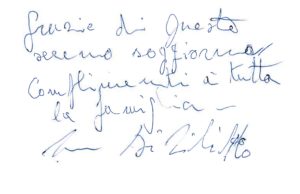 Grazie di questo
sereno soggiorno
complimenti a tutta
la famiglia